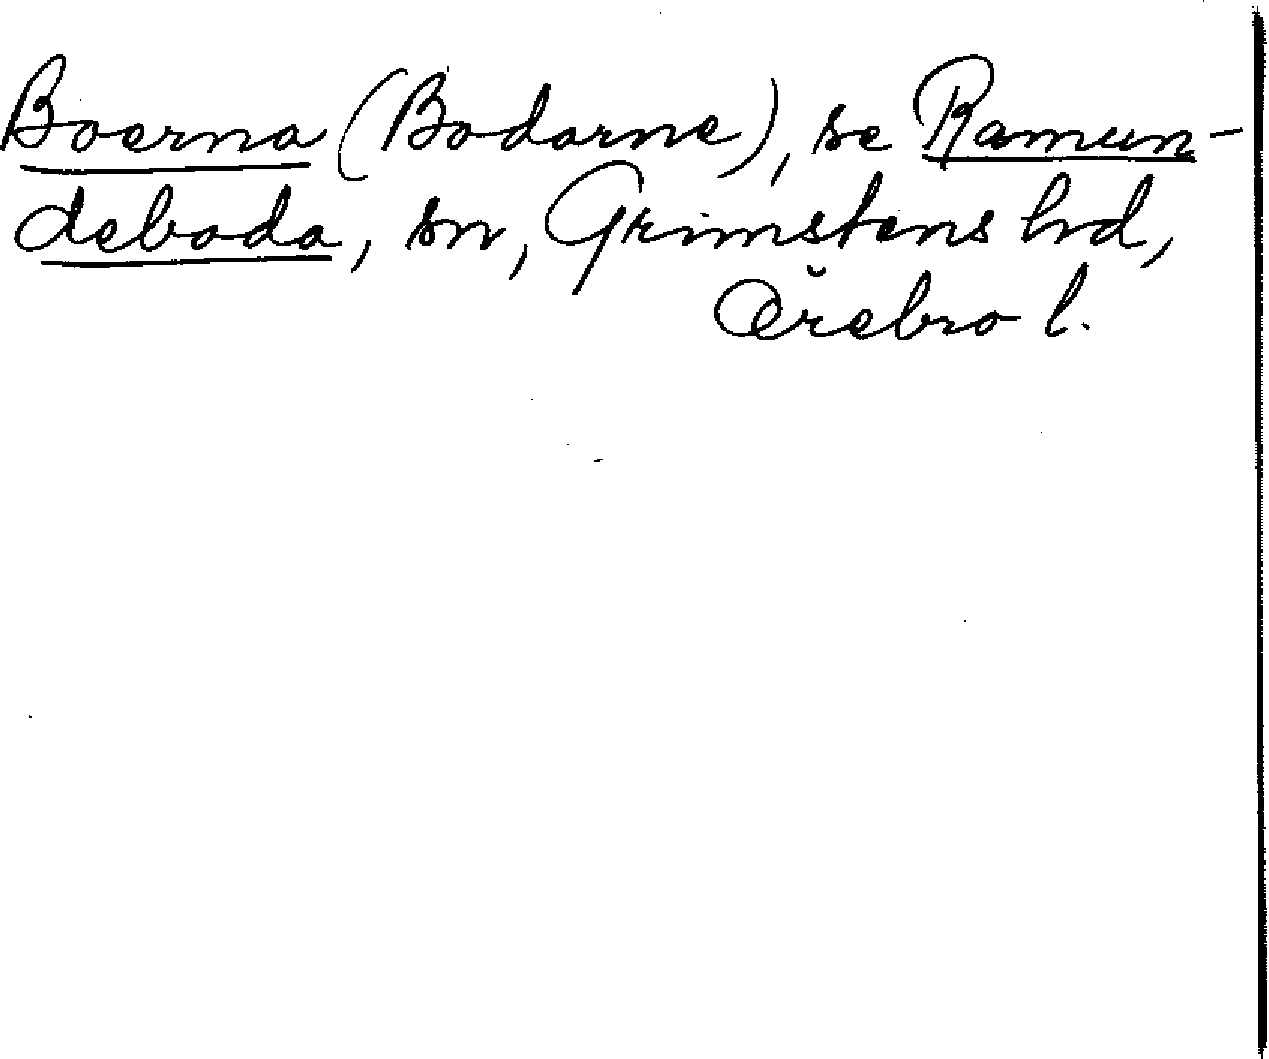 Boerna (Bodarne), se Ramun-
deboda, sn, Grimstens hrd,
Örebro l.